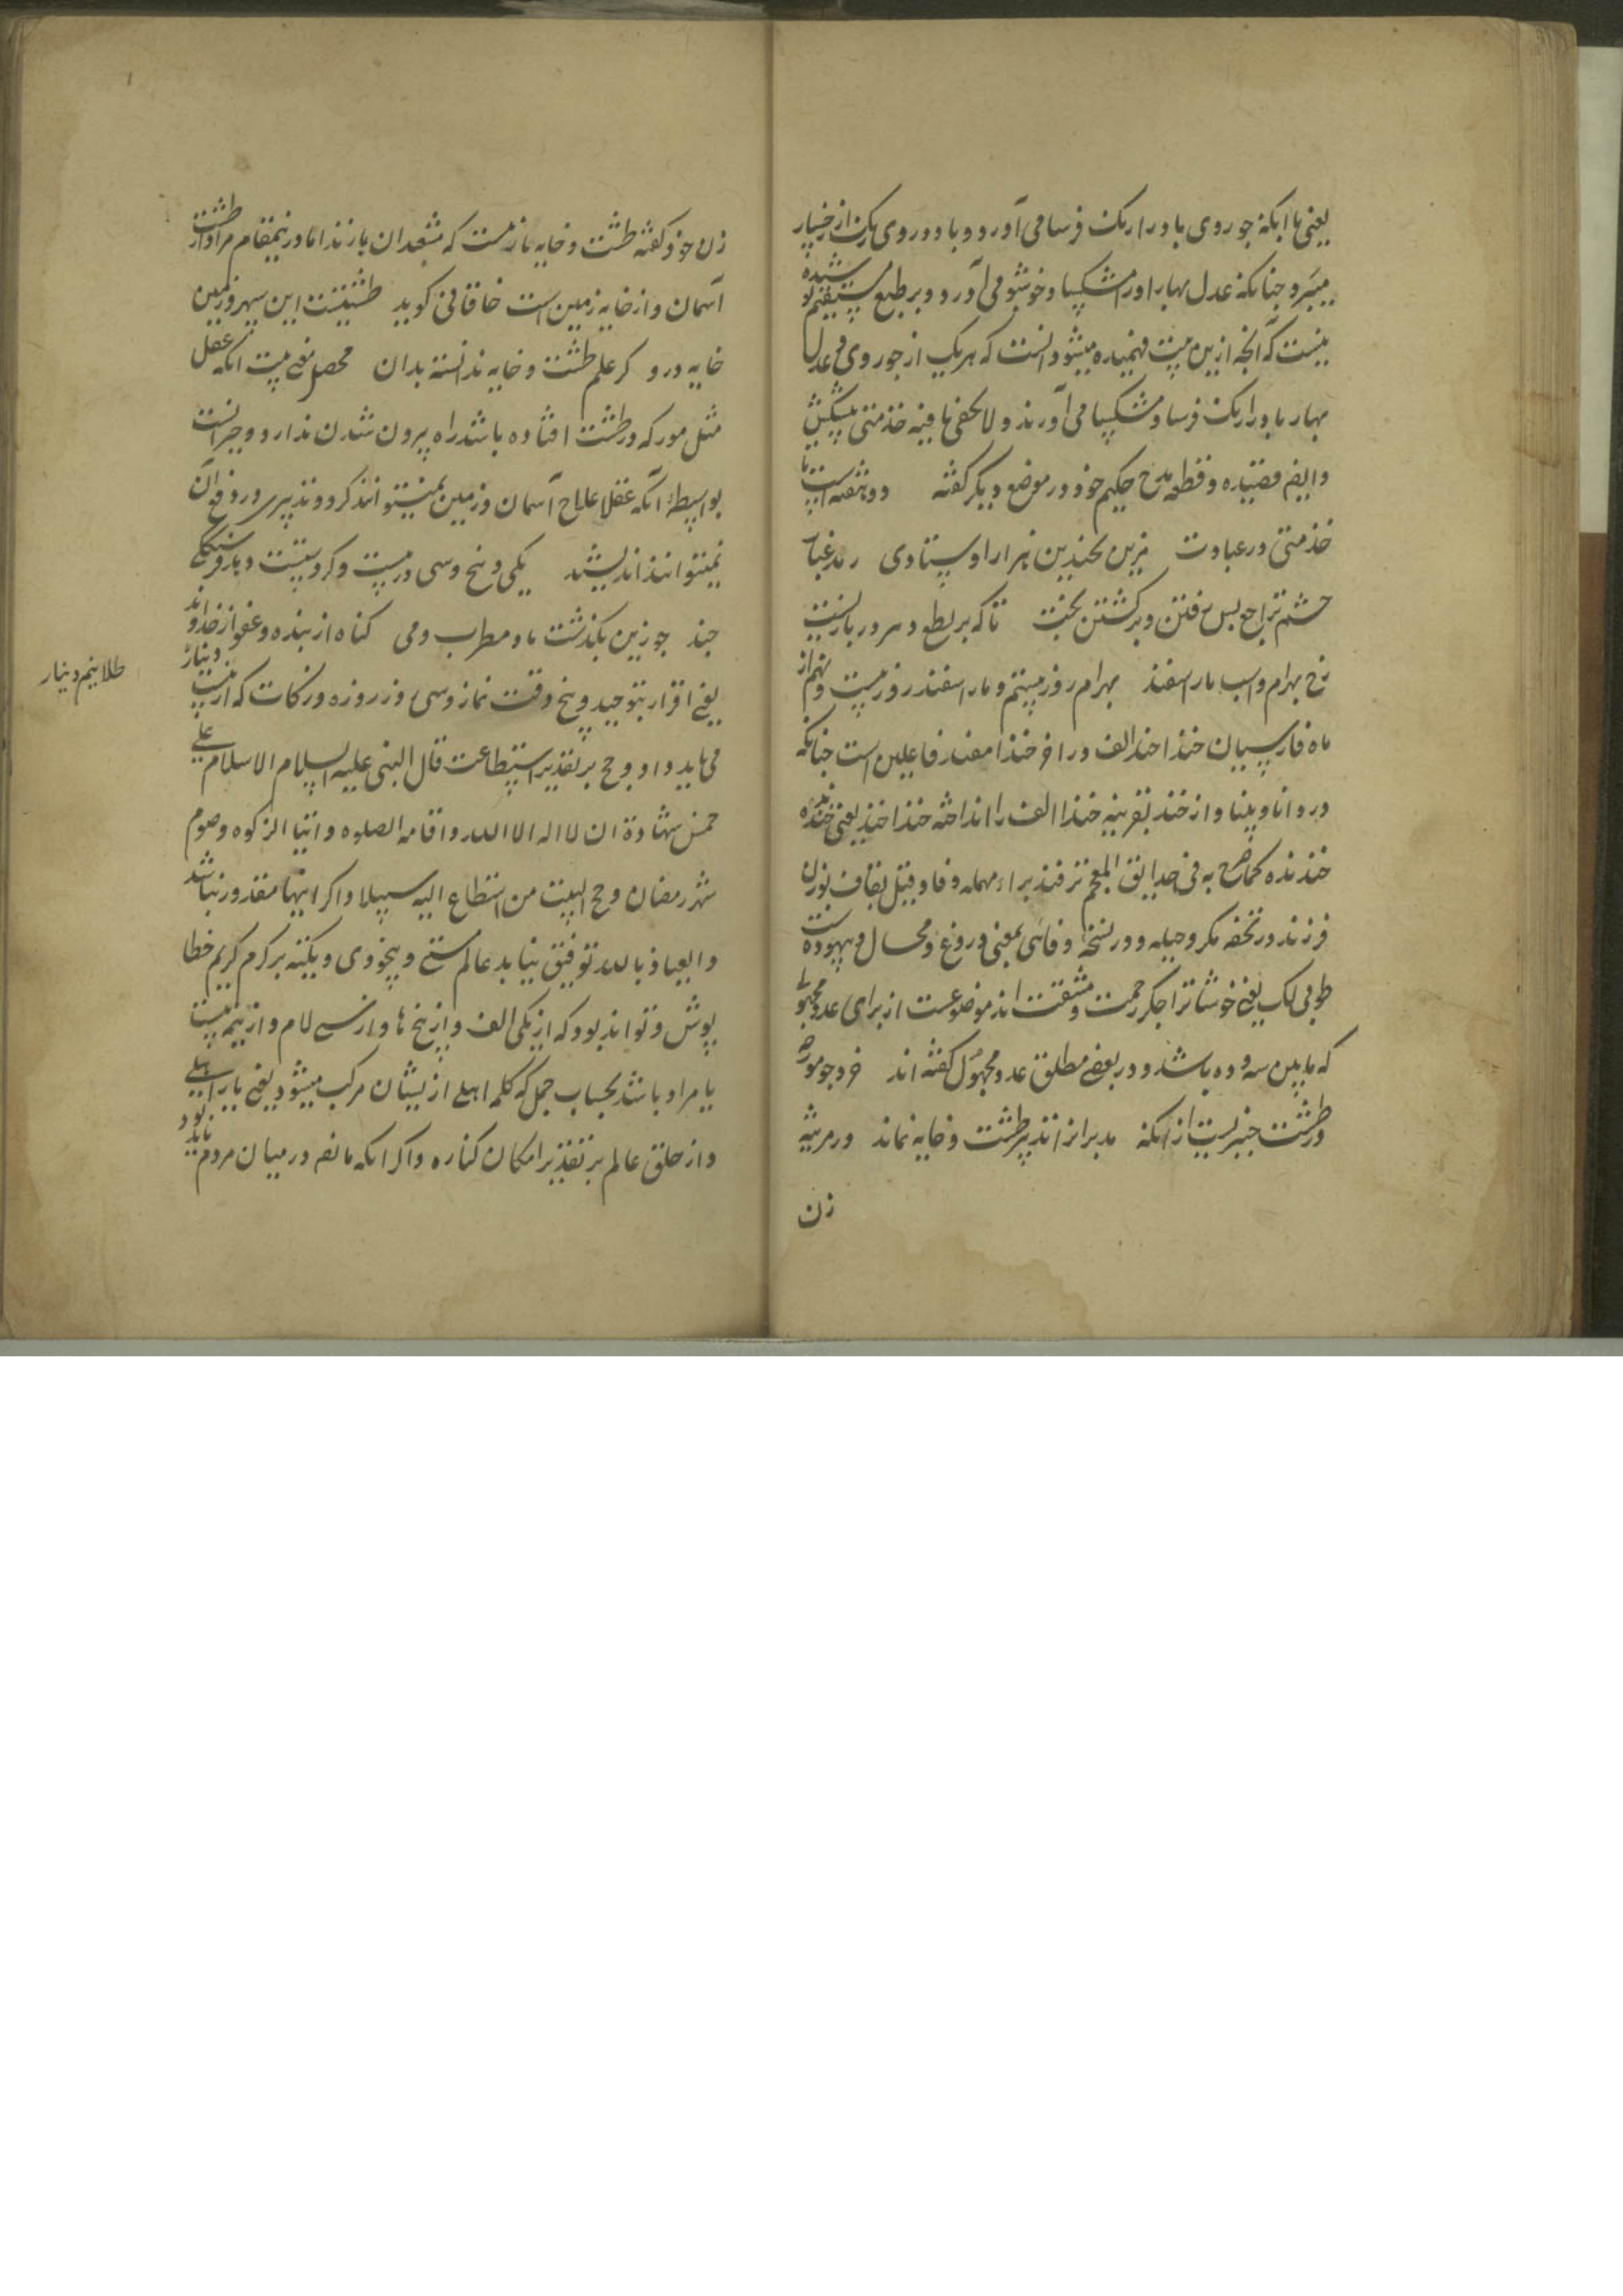 یعنی با آنکه جور وی باد را رنگ فرسا می آورد و باد در روی رنگ از رخسار
میبرد چنانکه عدل بهار او را مشکسا و خوشبو می آورد و بر طبع مستقیم پوشیده
نیست که آنچه ازین بیت فهمیده میشود آنست که هر یک از جور وی و عدل
بهار باد را رنگ فرسا و مشکسا می آورند و لا یخفی ما فیه خدمتی پیشکش
و ایضم قصیده و قطعه مدح حکیم خود در موضع دیگر گفته دو بنفشه است با
خدمتی در عبادت بزین بچندین هزار او ستادی
خشم ترا چو بس رفتن و برگشتن بخت تا که بر بط و سرود
رخ بهرام و اسب مار اسفند بهرام روز بیستم و مار اسفند روز بیست و نهم از
ماه فارسیان خندا خند الف در آخر خندا مفید فاعلین است چنانکه
در دانا و بینا و از خند بقرینه خندا الف را انداخته خندا خند یعنی خنده
خندنده کما صرح به فی حدایق المعجم ترفند براء مهمله و فا و قیل بقاف بوزن
فرزند در تحفه مکر و حیله و در نسخه وفائی بمعنی دروغ و محال و بیهوده است
طوبی لک یعنی خوشا ترا جگر رحمت و مشقت اند موضوعست از برای عدد مجهولی
که ما بین سه و ده باشد و در بعضی مطلق عدد مجهول گفته اند خرد چو مور
در طشت حیرتست از آنکه مدبر از اندر طشت و خایه نماند در مرثیه
زن
زن خود گفته طشت و خایه بازیست که مشعبدان بازند اما درینمقام مراد از طشت
آسمان و از خایه زمین است خاقانی گوید طشتیست این سپهر و زمین
خایه در و گر علم طشت و خایه ندانسته بدان محصل معنی بیت آنکه عقل
مثل مور که در طشت افتاده باشد راه بیرون شدن ندارد و حیرانست
بواسطه آنکه عقلا علاج آسمان و زمین نمیتوانند کرد و تدبیری در دفع آن
نمیتوانند اندیشید یکی و پنج و سی و ز بیست و گر و بیتیت
چند چو زین بگذشت ما و مطرب و می گناه از بنده و عفو از خداوند
یعنی اقرار بتوحید و پنج وقت نماز و سی روز روزه و زکات که از بیست دینار
طلا نیم دینار
می باید داد و حج بر تقدیر استطاعت قال النبی علیه السلام الاسلام علی
خمس شهادة ان لا اله الا الله و اقامه الصلوه و اتیا الزکوه و صوم
شهر رمضان و حج البیت من استطاع الیه سبیلا و اگر اینها مقدور نباشد
و العیاذ بالله توفیق نیابد عالم مستی و بیخودی و یکته بر کرم کریم خطا
پوش و تواند بود که از یکی الف و از پنج ها و از سی لام و از نیم بیست
یا مراد باشد بحساب جمل که کلمه اهلی ازیشان مرکب میشود یعنی یار اهلی
و از خلق عالم بر تقدیر امکان کناره و اگر آنکه مانع در میان مردم باید بود